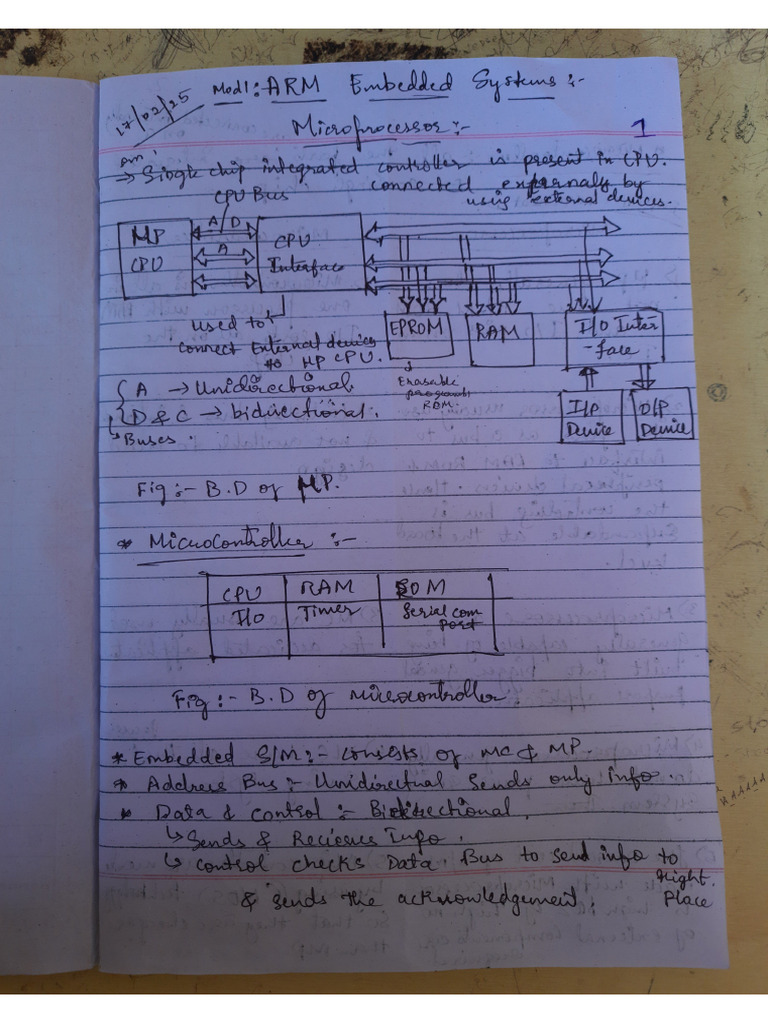 17/02/25
Mod1: ARM Embedded Systems :-
Microprocessor :-
1
→ Single chip integrated controller is present in CPU.
connected externally by
using external devices.
CPU Bus
MP
CPU
A / D
A
CPU
Interface
used to
connect External devices
to MP CPU.
EPROM
RAM
I/O Inter
-face
↓
Erasable
program
ROM.
I/P
Device
O/P
Device
A → Unidirectional
D & C → bidirectional.
↳ Buses :
Fig :- B.D of MP.
* Microcontroller :-
CPU RAM ROM
I/O Timer Serial com
Port
Fig :- B.D of Microcontroller
* Embedded S/M :- Consists of MC & MP.
* Address Bus :- Unidirectual Sends only info.
* Data & Control :- Bidirectional.
↳ Sends & Recieves Info.
↳ Control checks Data Bus to send info to
right
Place
& sends the acknowledgement.